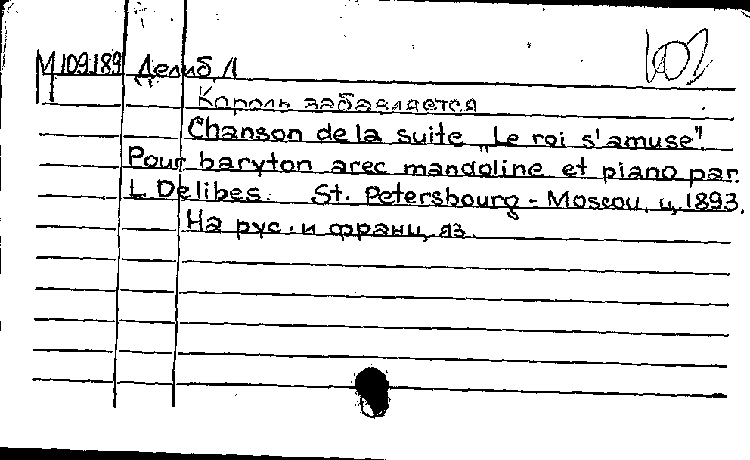 М109.189 Делиб, Л
Король забавляется
Chanson de la suite „Le roi s'amuse".
Pour baryton avec mandoline et piano par
L. Delibes. St. Petersbourg - Moscou, ц. 1893.
На рус. и франц. яз.